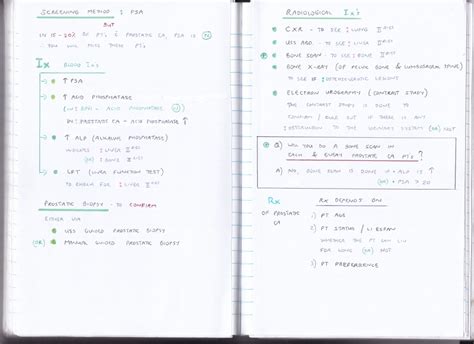 SCREENING METHOD : PSA
BUT
IN 15-20% OF PT'S C̄ PROSTATE CA, PSA IS (N)
∴ YOU WILL MISS THESE PT'S
Ix BLOOD Ix's
↑ PSA
↑ ACID PHOSPHATASE
IN : BPH - ACID PHOSPHATASE
IN : PROSTATE CA - ACID PHOSPHATASE ↑
↑ ALP (ALKALINE PHOSPHATASE)
INDICATES : LIVER
(OR) : BONE
LFT (LIVER FUNCTION TEST)
TO EXAMINE FOR : LIVER
PROSTATIC BIOPSY - TO CONFIRM
EITHER VIA
USS GUIDED PROSTATE BIOPSY
(OR) MANUAL GUIDED PROSTATE BIOPSY
RADIOLOGICAL Ix's
CXR - TO SEE : LUNG
USS ABDO - TO SEE : LIVER
BONE SCAN - TO SEE : BONE
BONE X-RAY (OF PELVIC BONE & LUMBOSACRAL SPINE)
TO SEE IF : OSTEOSCLEROTIC LESIONS
UROGRAPHY (CONTRAST STUDY)
THE CONTRAST STUDY IS DONE TO
CONFIRM / RULE OUT IF THERE IS ANY
TO THE URINARY SYSTEM (OR) NOT
Q) WILL YOU DO A BONE SCAN IN
EACH & EVERY PROSTATE CA PT'S ?
A) NO, BONE SCAN IS DONE IF ↑ ALP IS ↑
(OR) ↑ PSA > 20
Rx Rx DEPENDS ON
OF PROSTATE CA 1) PT AGE
2) PT STATUS / LIFESPAN
WHETHER THE PT CAN LIV
FOR 10YRS (OR) NOT
3) PT PREFERENCE